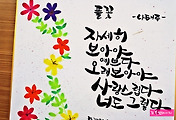 풀꽃
-나태주-
자세히
보아야
예쁘다
오래보아야
사랑스럽다
너도 그렇다